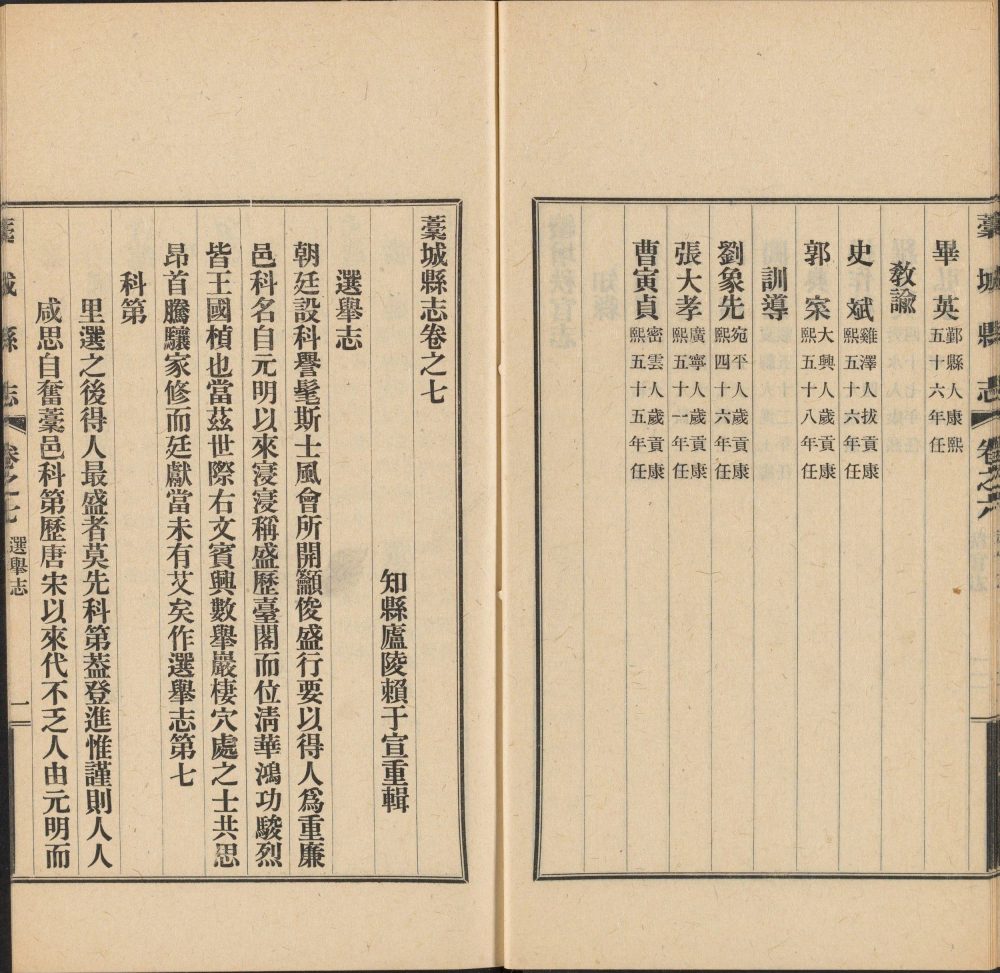 藁城縣志 卷之六
畢英 鄞縣人康熙五十六年任
教諭
史斌 雞澤人拔貢康熙五十六年任
郭寀 大興人歲貢康熙五十八年任
訓導
劉象先 宛平人歲貢康熙四十六年任
張大孝 廣寧人歲貢康熙五十一年任
曹寅貞 密雲人歲貢康熙五十五年任
藁城縣志卷之七
知縣廬陵賴于宣重輯
選舉志
朝廷設科譽髦斯士風會所開籲俊盛行要以得人爲重廉
邑科名自元明以來寖寖稱盛歷臺閣而位淸華鴻功駿烈
皆王國楨也當茲世際右文賓興數舉巖棲穴處之士共思
昂首騰驤家修而廷獻當未有艾矣作選舉志第七
科第
里選之後得人最盛者莫先科第葢登進惟謹則人人
咸思自奮藁邑科第歷唐宋以來代不乏人由元明而
藁城縣志 卷之七 選舉志 一